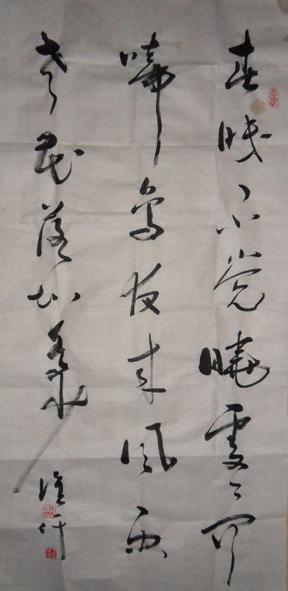 春眠不觉曉處々闻
啼鸟夜来风雨
声花落知多少